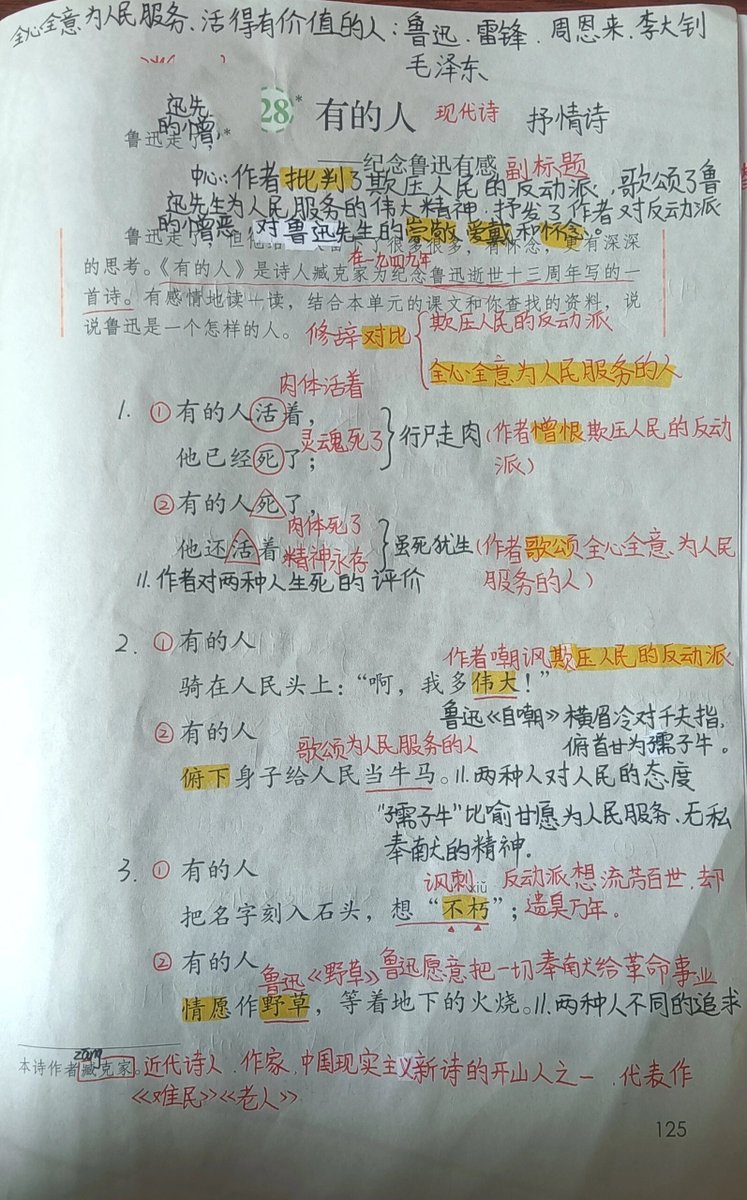 全心全意为人民服务、活得有价值的人：鲁迅、雷锋、周恩来、李大钊
毛泽东
迅先
28* 有的人 现代诗 抒情诗
的憎
鲁迅走了，*
——纪念鲁迅有感 副标题
中心：作者批判了欺压人民的反动派，歌颂了鲁
迅先生为人民服务的伟大精神，抒发了作者对反动派
的憎恶 对鲁迅先生的崇敬 爱戴和怀念。
鲁迅走了，但他给 了很多很多，有怀念，更有深深
在一九四九年
的思考。《有的人》是诗人臧克家为纪念鲁迅逝世十三周年写的一
首诗。有感情地读一读，结合本单元的课文和你查找的资料，说
说鲁迅是一个怎样的人。
修辞对比 欺压人民的反动派
全心全意为人民服务的人
肉体活着
1. ①有的人活着，
灵魂死了 行尸走肉(作者憎恨欺压人民的反动
他已经死了； 派)
②有的人死了，
肉体死了
他还活着 精神永存 虽死犹生(作者歌颂全心全意、为人民
服务的人)
11.作者对两种人生死的评价
2. ①有的人
作者嘲讽欺压人民的反动派
骑在人民头上：“啊，我多伟大！”
鲁迅《自嘲》横眉冷对千夫指，
②有的人 俯首甘为孺子牛。
歌颂为人民服务的人
俯下身子给人民当牛马。11.两种人对人民的态度
“孺子牛”比喻甘愿为人民服务、无私
奉献的精神．
3. ①有的人
讽刺 xiǔ 反动派想流芳百世，却
把名字刻入石头，想“不朽”；遗臭万年。
②有的人
鲁迅《野草》鲁迅愿意把一切奉献给革命事业
情愿作野草，等着地下的火烧。11.两种人不同的追求
zāng
本诗作者臧克家。近代诗人、作家，中国现实主义新诗的开山人之一，代表作
《难民》《老人》
125